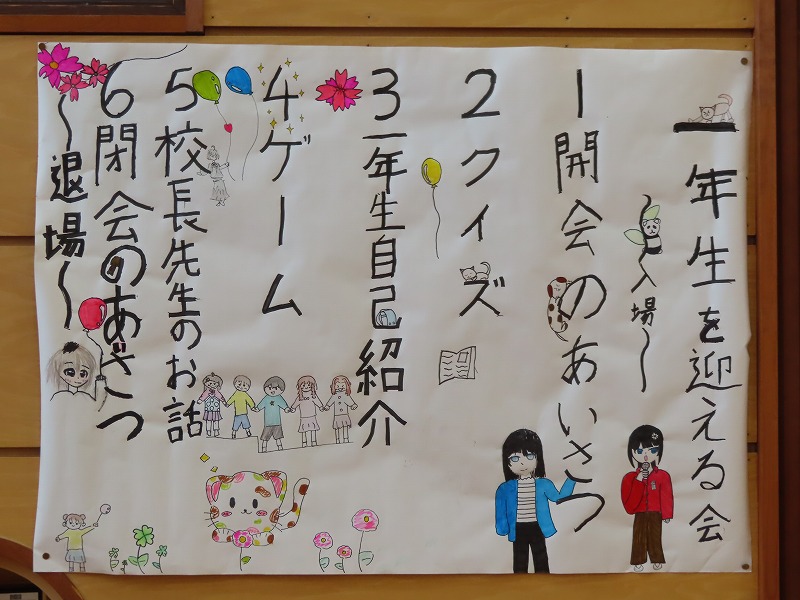 一年生を迎える会
～入場～
1開会のあいさつ
2クイズ
3一年生自己紹介
4ゲーム
5校長先生のお話
6閉会のあいさつ
～退場～